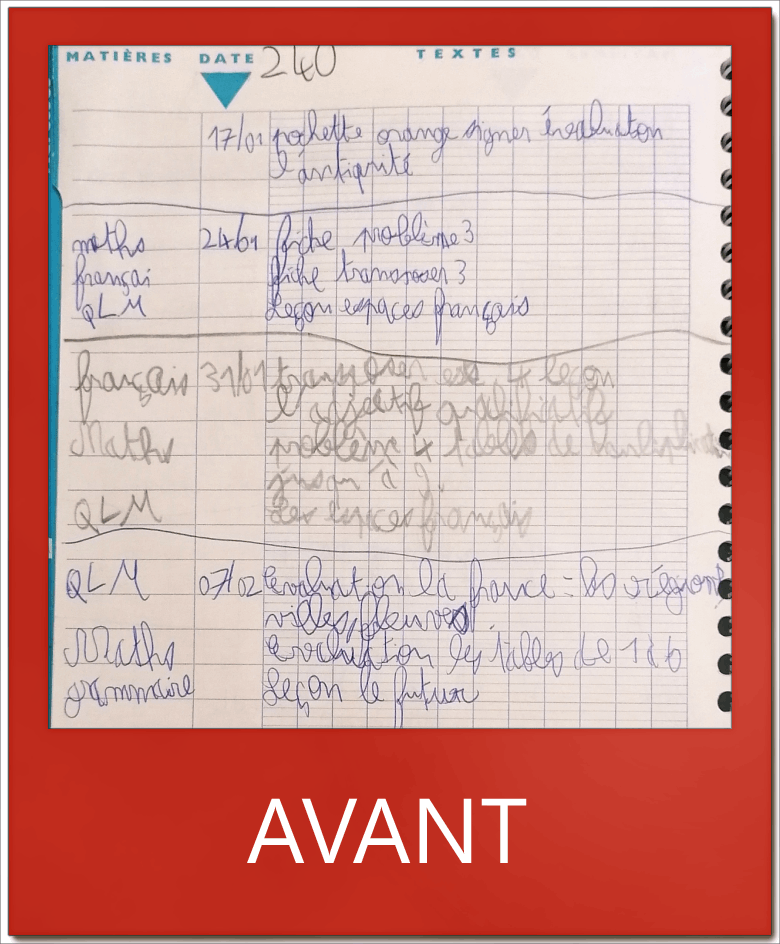 MATIÈRES DATE 240 TEXTES
17/01 pochette orange signer évaluation
l'antiquité
maths 24/01 fiche problème 3
françai fiche transposer 3
QLM Leçon espaces français
français 31/01 transposer 4 leçon
l'adjectif qualificatif
Maths problème 4 tables de
jusqu'à 9.
QLM Les espaces français
QLM 07/02 évaluation la france = régions
villes, fleuves
Maths évaluation les tables de 1 à 6
grammaire Leçon le futur
AVANT